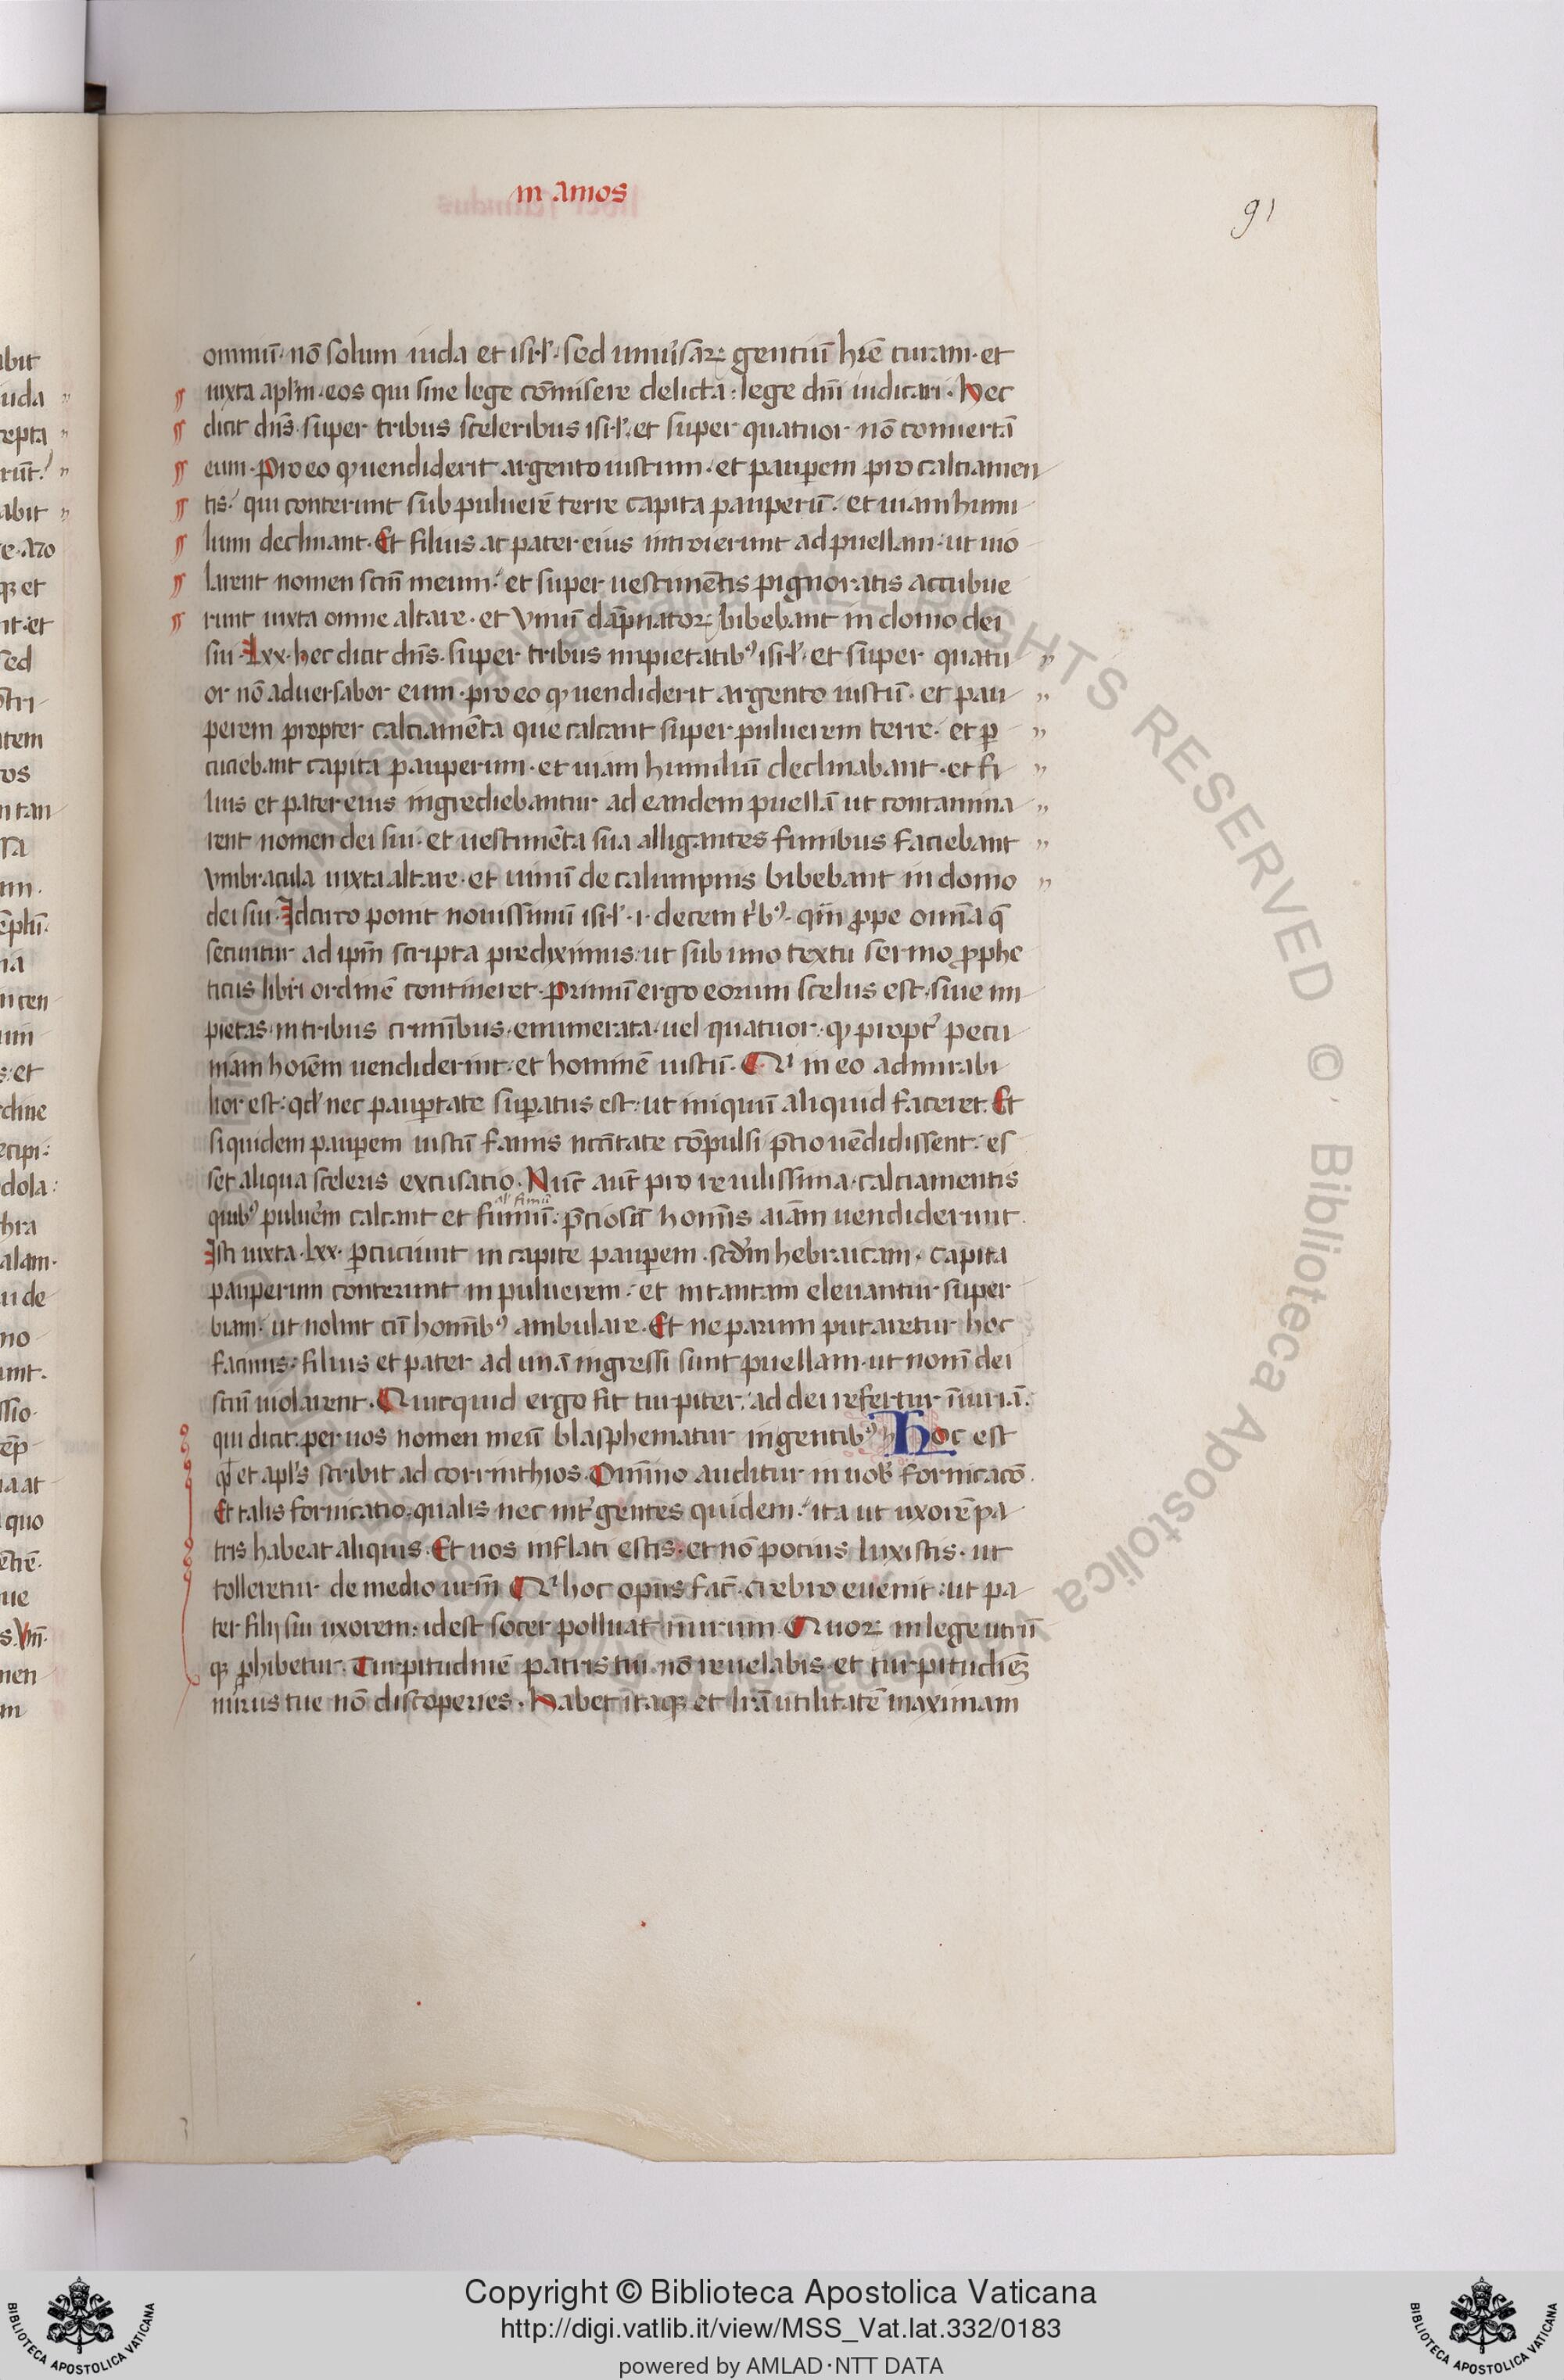 in amos
91
omniū· nō solum iuda et isr̄l· sed uniu̾saꝝ gentiū hr̄e curam· et
iuxta apl̄m· eos qui sine lege cōmisere delicta· lege dn̄i iudicari· Hec
dicit dn̄s· super tribus sceleribus isr̄l· et super quatuor nō conuertā
eum· Pro eo ꝙ uendiderit argento iustum· et paup̱em pro calciamen
tis· qui conterunt sub puluerē terre capita pauperū· et uiam humi
lium declinant· Et filius ac pater eius introierunt ad puellam· ut uio
larent nomen scm̄ meum· et super uestimētis pignoratis accubue
runt iuxta omne altare· et vinū dāpnatoꝝ bibebant in domo dei
sui· Lxx· hec dicit dn̄s· super tribus impietatibꝰ isr̄l· et super quatu
or nō aduersabor eum· pro eo ꝙ uendiderit argento iustū· et pau
perem propter calciamēta que calcant super puluerem terre· et p̱
cuciebant capita pauperum· et uiam humiliū declinabant· et fi
lius et pater eius ingrediebantur ad eandem puellā ut contamina
rent nomen dei sui· et uestimēta sua alligantes funibus faciebant
vmbracula iuxta altare· et uinū de calumpniis bibebant in domo
dei sui· Idcirco ponit nouissimū isr̄l· i· decem t̾bꝰ· qm̄ ꝓpe omīa q̄
secuntur ad ip̄m scripta prediximus· ut sub uno textu sermo ꝓphe
ticus libri ordinē contineret· Primū ergo eorum scelus est· siue im
pietas· in tribus criminibus· enumerata· uel quatuor· ꝙ propt̾ pecu
niam hoīem uendiderint· et hominē iustū· Qͥ in eo admirabi
lior est· qd̄ nec paup̱tate sup̱atus est· ut iniquū aliquid faceret· Et
siquidem paup̱em iustū famis nc̄citate cōpulsi p̄cio uēdidissent· es
set aliqua sceleris excusatio· Nūc aut̄ pro re uilissima· calciamentis
al̾ fimū
quibꝰ puluerēm calcant et fumū· p̄ciosā hoīs aīam uendiderunt
Isti iuxta· Lxx· p̱cuciunt in capite paup̱em· scd̄m hebraicam· capita
pauperum conterunt in puluerem· et in tantam eleuantur super
biam· ut nolint cū hoībꝰ ambulare· Et ne parum putaretur hoc
facinus· filius et pater ad unā ingressi sunt puellam· ut nom̄ dei
scm̄ uiolarent· Quicquid ergo fit turpiter· ad dei refertur īiuriā·
qui dicit· per uos nomen meū blasphematur in gentibꝰ Hoc est
qd̄ et apl̄s scribit ad corrinthios· Omīno auditur in uob̄ fornicacō
Et talis fornicatio· qualis nec int̾ gentes quidem· ita ut uxorē pa
tris habeat aliquis· Et uos inflati estis· et nō pocius luxistis· ut
tolleretur de medio urm̄ Qͥ hoc opus fac̄· crebro euenit· ut pa
ter filij sui uxorem· id est socer polluat nurum· Quoꝝ in lege utrū
qꝫ ꝓhibetur· Turpitudinē patris tui nō reuelabis· et turpitudiēꝫ
nurus tue nō discoperies· Habet itaqꝫ et lr̄a utilitatē maximam
Copyright © Biblioteca Apostolica Vaticana
http://digi.vatlib.it/view/MSS_Vat.lat.332/0183
powered by AMLAD·NTT DATA